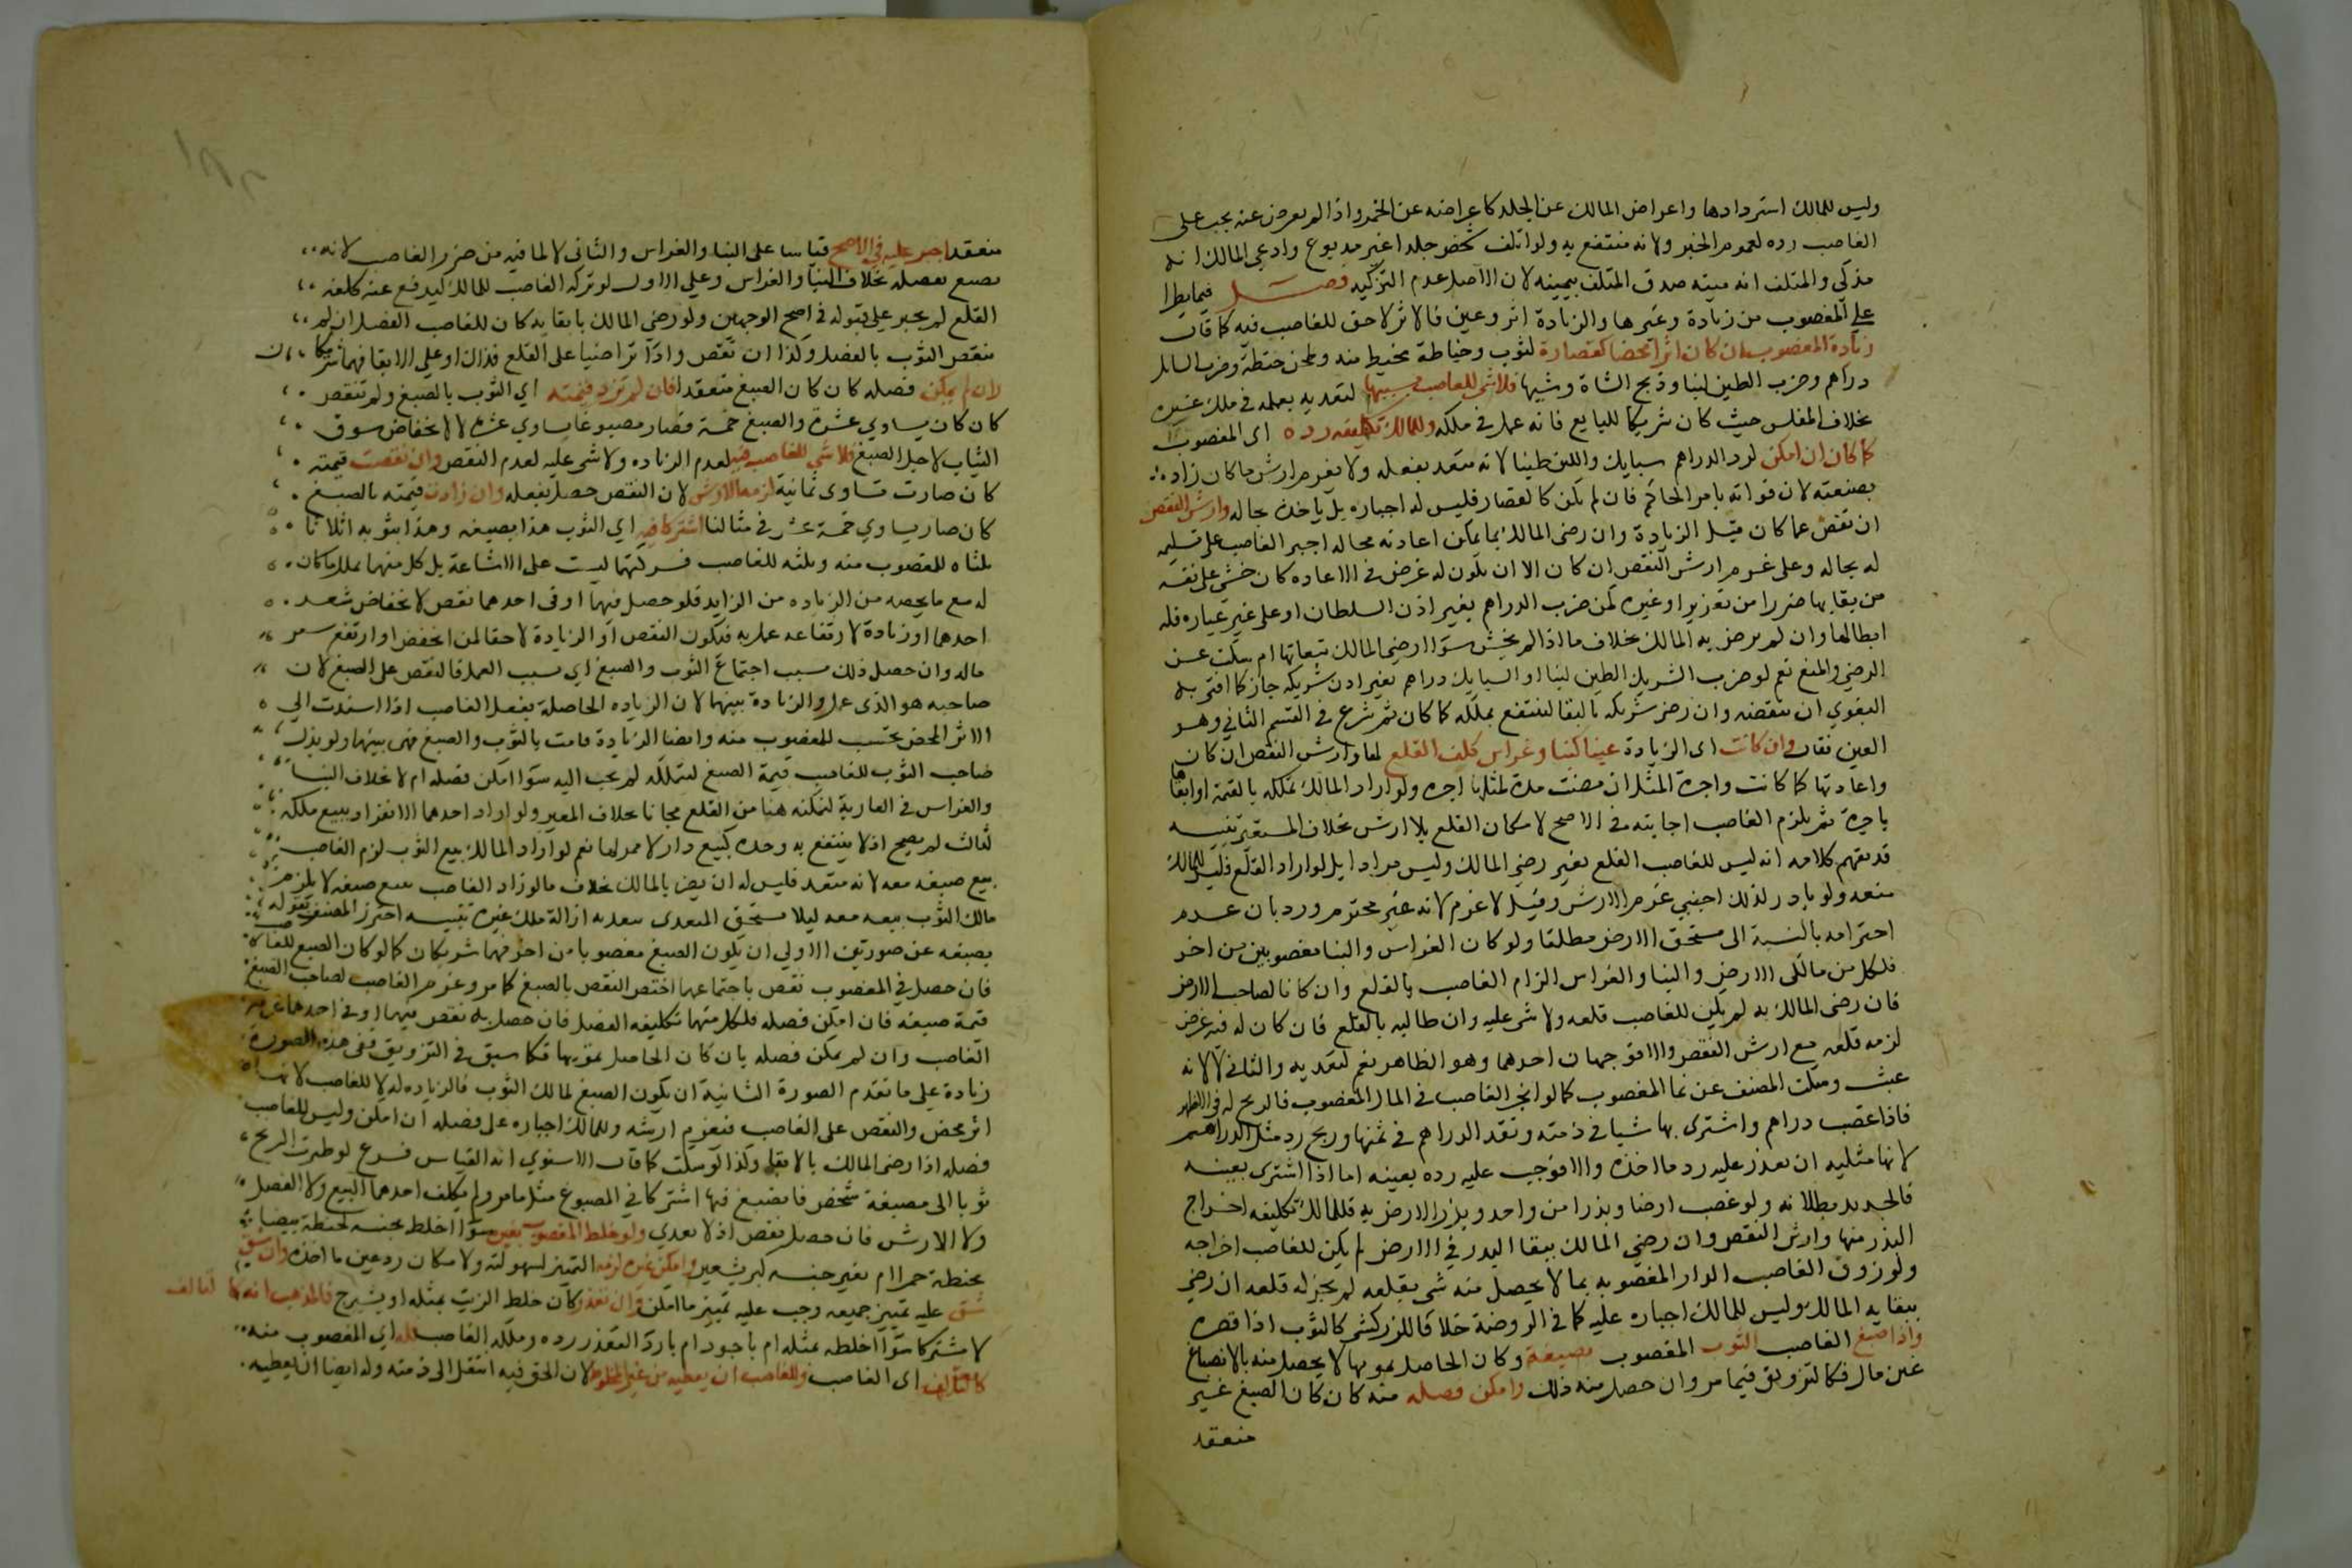 وليس للمالك استردادها واعراض المالك عن الجلد كاعراضه عن الخمر واذا لم يعرض عنه يجب على
الغاصب رده لعموم الخبر ولانه منتفع به ولو اتلف شخص جلدا غير مدبوغ وادعى المالك انه
مذكى والمتلف انه ميتة صدق المتلف بيمينه لان الاصل عدم التزكيه فصل فيما يطرا
على المغصوب من زيادة وغيرها والزيادة اثر وعين فالاثر لا حق للغاصب فيه كما قال
زيادة المغصوب ان كان اثرا محضا كقصارة لثوب وخياطة بخيط منه وطحن حنطة وضرب السبايك
دراهم وضرب الطين لبنا وذبح الشاة وشيها فلا شي للغاصب بسببها لتعديه بعمله في ملك غيره
بخلاف المفلس حيث كان شريكا للبايع فانه عمل في ملكه وللمالك تكليفه رده اى المغصوب
كما كان ان امكن لرد الدراهم سبايك واللبن طينا لانه متعد بفعله ولا يغرم ارش ما كان زاد
بصنعته لان فواته بامر الحاكم فان لم يمكن كالقصارة فليس له اجباره بل ياخذه بحاله وارش النقص
ان نقص عما كان قبل الزيادة وان رضى المالك بما يمكن اعادته بحاله اجبر الغاصب على تسليمه
له بحاله وعلى غرم ارش النقص ان كان الا ان يكون له غرض في الاعاده كان خشى على نفسه
من بقايها ضررا من تعزير او غيره كمن ضرب الدراهم بغير اذن السلطان او على غير عياره فله
ابطالها وان لم يرض به المالك بخلاف ما اذا لم يخش سوا ارضى المالك ببقايها ام سكت عن
الرضى والمنع نعم لو ضرب الشريك الطين لبنا او السبايك دراهم بغير اذن شريكه جاز كما افتى به
البغوي ان ينقضه وان رضى شريكه بالبقا لينتفع بملكه كما كان ثم شرع في القسم الثاني وهو
العين فقال وان كانت اى الزيادة عينا كبنا وغراس كلف القلع لها وارش النقص ان كان
واعادتها كما كانت واجرة المثل ان مضت مدة لمثلها اجره ولو اراد المالك تملكه بالقيمة او ابقاها
باجرة لم يلزم الغاصب اجابته في الاصح لامكان القلع بلا ارش بخلاف المستعير تنبيه
قد يفهم كلامه انه ليس للغاصب القلع بغير رضى المالك وليس مرادا بل لو اراد القلع فليس للمالك
منعه ولو بادر لذلك اجنبي غرم الارش وقيل لا غرم لانه غير محترم ورد بان عدم
احترامه بالنسبة الى مستحق الارض مطلقا ولو كان الغراس والبنا مغصوبين من اخر
فلكل من مالكى الارض والبنا والغراس الزام الغاصب بالقلع وان كانا لصاحب الارض
فان رضى المالك به لم يكن للغاصب قلعه ولا شى عليه وان طالبه بالقلع فان كان له فيه غرض
لزمه قلعه مع ارش النقص والا فوجهان احدهما وهو الظاهر نعم لتعديه والثاني لا لانه
عبث وسكت المصنف عن نما المغصوب كما لو اتجر الغاصب في المال المغصوب فالربح له في الاظهر
فاذا غصب دراهم واشترى بها شيا في ذمته ونقد الدراهم في ثمنها وربح رد مثل الدراهم
لانها مثليه ان تعذر عليه رد ما اخذه والا فوجب عليه رده بعينه اما اذا اشترى بعينه
فالجديد بطلانه ولو غصب ارضا وبذرا من واحد وبذر الارض به فللمالك تكليفه اخراج
البذر منها وارش النقص وان رضى المالك ببقا البذر في الارض لم يكن للغاصب اخراجه
ولو زوق الغاصب الدار المغصوبه بما لا يحصل منه شى بقلعه لم يجز له قلعه ان رضى
ببقايه المالك وليس للمالك اجباره عليه كما في الروضة خلافا للزركشى كالثوب اذا قصره
واذا صبغ الغاصب الثوب المغصوب بصبغه وكان الحاصل تمويها لا يحصل منه بالانصباغ
عين مال فكالتزويق فيما مر وان حصل منه ذلك وامكن فصله منه كان كان الصبغ غير
منعقد
منعقد اجبر عليه في الاصح قياسا على البنا والغراس والثانى لا لما فيه من ضرر الغاصب لانه
يضيع بفصله بخلاف البنا والغراس وعلى الاول لو تركه الغاصب للمالك ليدفع عنه كلفه
القلع لم يجبر على قبوله في اصح الوجهين ولو رضى المالك بابقايه كان للغاصب الفصل ان لم
ينقص الثوب بالفصل وكذا ان نقص واذا تراضيا على القلع فذاك او على الابقا فهما شريكان
وان لم يمكن فصله كان كان الصبغ منعقدا فان لم تزد قيمته اي الثوب بالصبغ ولم تنقص
كان كان يساوي عشرة والصبغ خمسة فصار مصبوغا يساوي عشره لا لانخفاض سوق
الثياب لاجل الصبغ فلا شي للغاصب فيه لعدم الزياده ولا شى عليه لعدم النقص وان نقصت قيمته
كان صارت تساوى ثمانية لزمه الارش لان النقص حصل بفعله وان زادت قيمته بالصبغ
كان صار يساوي خمسة عشر في مثالنا اشتركا فيه اي الثوب هذا بصبغه وهذا بثوبه اثلاثا
ثلثاه للمغصوب منه وثلثه للغاصب فشركتهما ليست على الاشاعة بل كل منهما يملك ما كان
له مع ما يخصه من الزياده من الزايد فلو حصل فيهما او في احدهما نقص لانخفاض سعر
احدهما او زيادة لارتفاعه عمل به فيكون النقص او الزيادة لاحقا لمن انخفض او ارتفع سعر
ماله وان حصل ذلك بسبب اجتماع الثوب والصبغ اي بسبب العمل فالنقص على الصبغ لان
صاحبه هو الذى عمل والزيادة بينهما لان الزياده الحاصلة بفعل الغاصب اذا استندت الى
الاثر المحض تحتسب للمغصوب منه وايضا الزيادة قامت بالثوب والصبغ فهى بينهما ولو بذل
صاحب الثوب للغاصب قيمة الصبغ ليتملكه لم يجب اليه سوا امكن فصله ام لا بخلاف البنا
والغراس في العارية لتمكنه هنا من القلع مجانا بخلاف المعير ولو اراد احدهما الانفراد ببيع ملكه
لثالث لم يصح اذ لا ينتفع به وحده كبيع دار لا ممر لها نعم لو اراد المالك بيع الثوب لزم الغاصب
بيع صبغه معه لانه متعد فليس له ان يضر بالمالك بخلاف ما لو اراد الغاصب بيع صبغه لا يلزم
مالك الثوب بيعه معه ليلا يستحق المتعدى بتعديه ازالة ملك غيره تنبيه احترز المصنف بقوله
بصبغه عن صورتين الاولى ان يكون الصبغ مغصوبا من اخر فهما شريكان كما لو كان الصبغ للغاصب
فان حصل في المغصوب نقص باجتماعهما اختص النقص بالصبغ كما مر وغرم الغاصب لصاحب الصبغ
قيمة صبغه فان امكن فصله فلكل منهما تكليفه الفصل فان حصل به نقص فيهما او في احدهما غرمه
الغاصب وان لم يمكن فصله بان كان الحاصل تمويها فكما سبق في التزويق ففى هذه الصورة
زيادة على ما تقدم الصورة الثانية ان يكون الصبغ لمالك الثوب فالزياده له لا للغاصب لانها
اثر محض والنقص على الغاصب فيغرم ارشه وللمالك اجباره على فصله ان امكن وليس للغاصب
فصله اذا رضى المالك بالابقا وكذا لو سكت كما قال الاسنوي انه القياس فرع لو طيرت الريح
ثوبا الى مصبغة شخص فانصبغ فيها اشتركا في المصبوغ مثل ما مر ولم يكلف احدهما البيع ولا الفصل
ولا الارش فان حصل نقص اذ لا تعدي ولو خلط المغصوب بغيره سوا اخلط بجنسه كحنطة بيضا
بحنطة حمرا ام بغير جنسه كبر بشعير وامكن تمييزه لزمه التمييز لسهولته ولامكان رد عين ما اخذه وان شق
شق عليه تمييز جميعه وجب عليه تمييز ما امكن وان تعذر كان خلط الزيت بمثله او بشيرج فالمذهب انه كالتالف
لا مشتركا سوا اخلطه بمثله ام باجود ام باردا لتعذر رده وملكه الغاصب فله اي المغصوب منه
تغريمه اى الغاصب وللغاصب ان يعطيه من غير المخلوط لان الحق فيه انتقل الى ذمته وله ايضا ان يعطيه